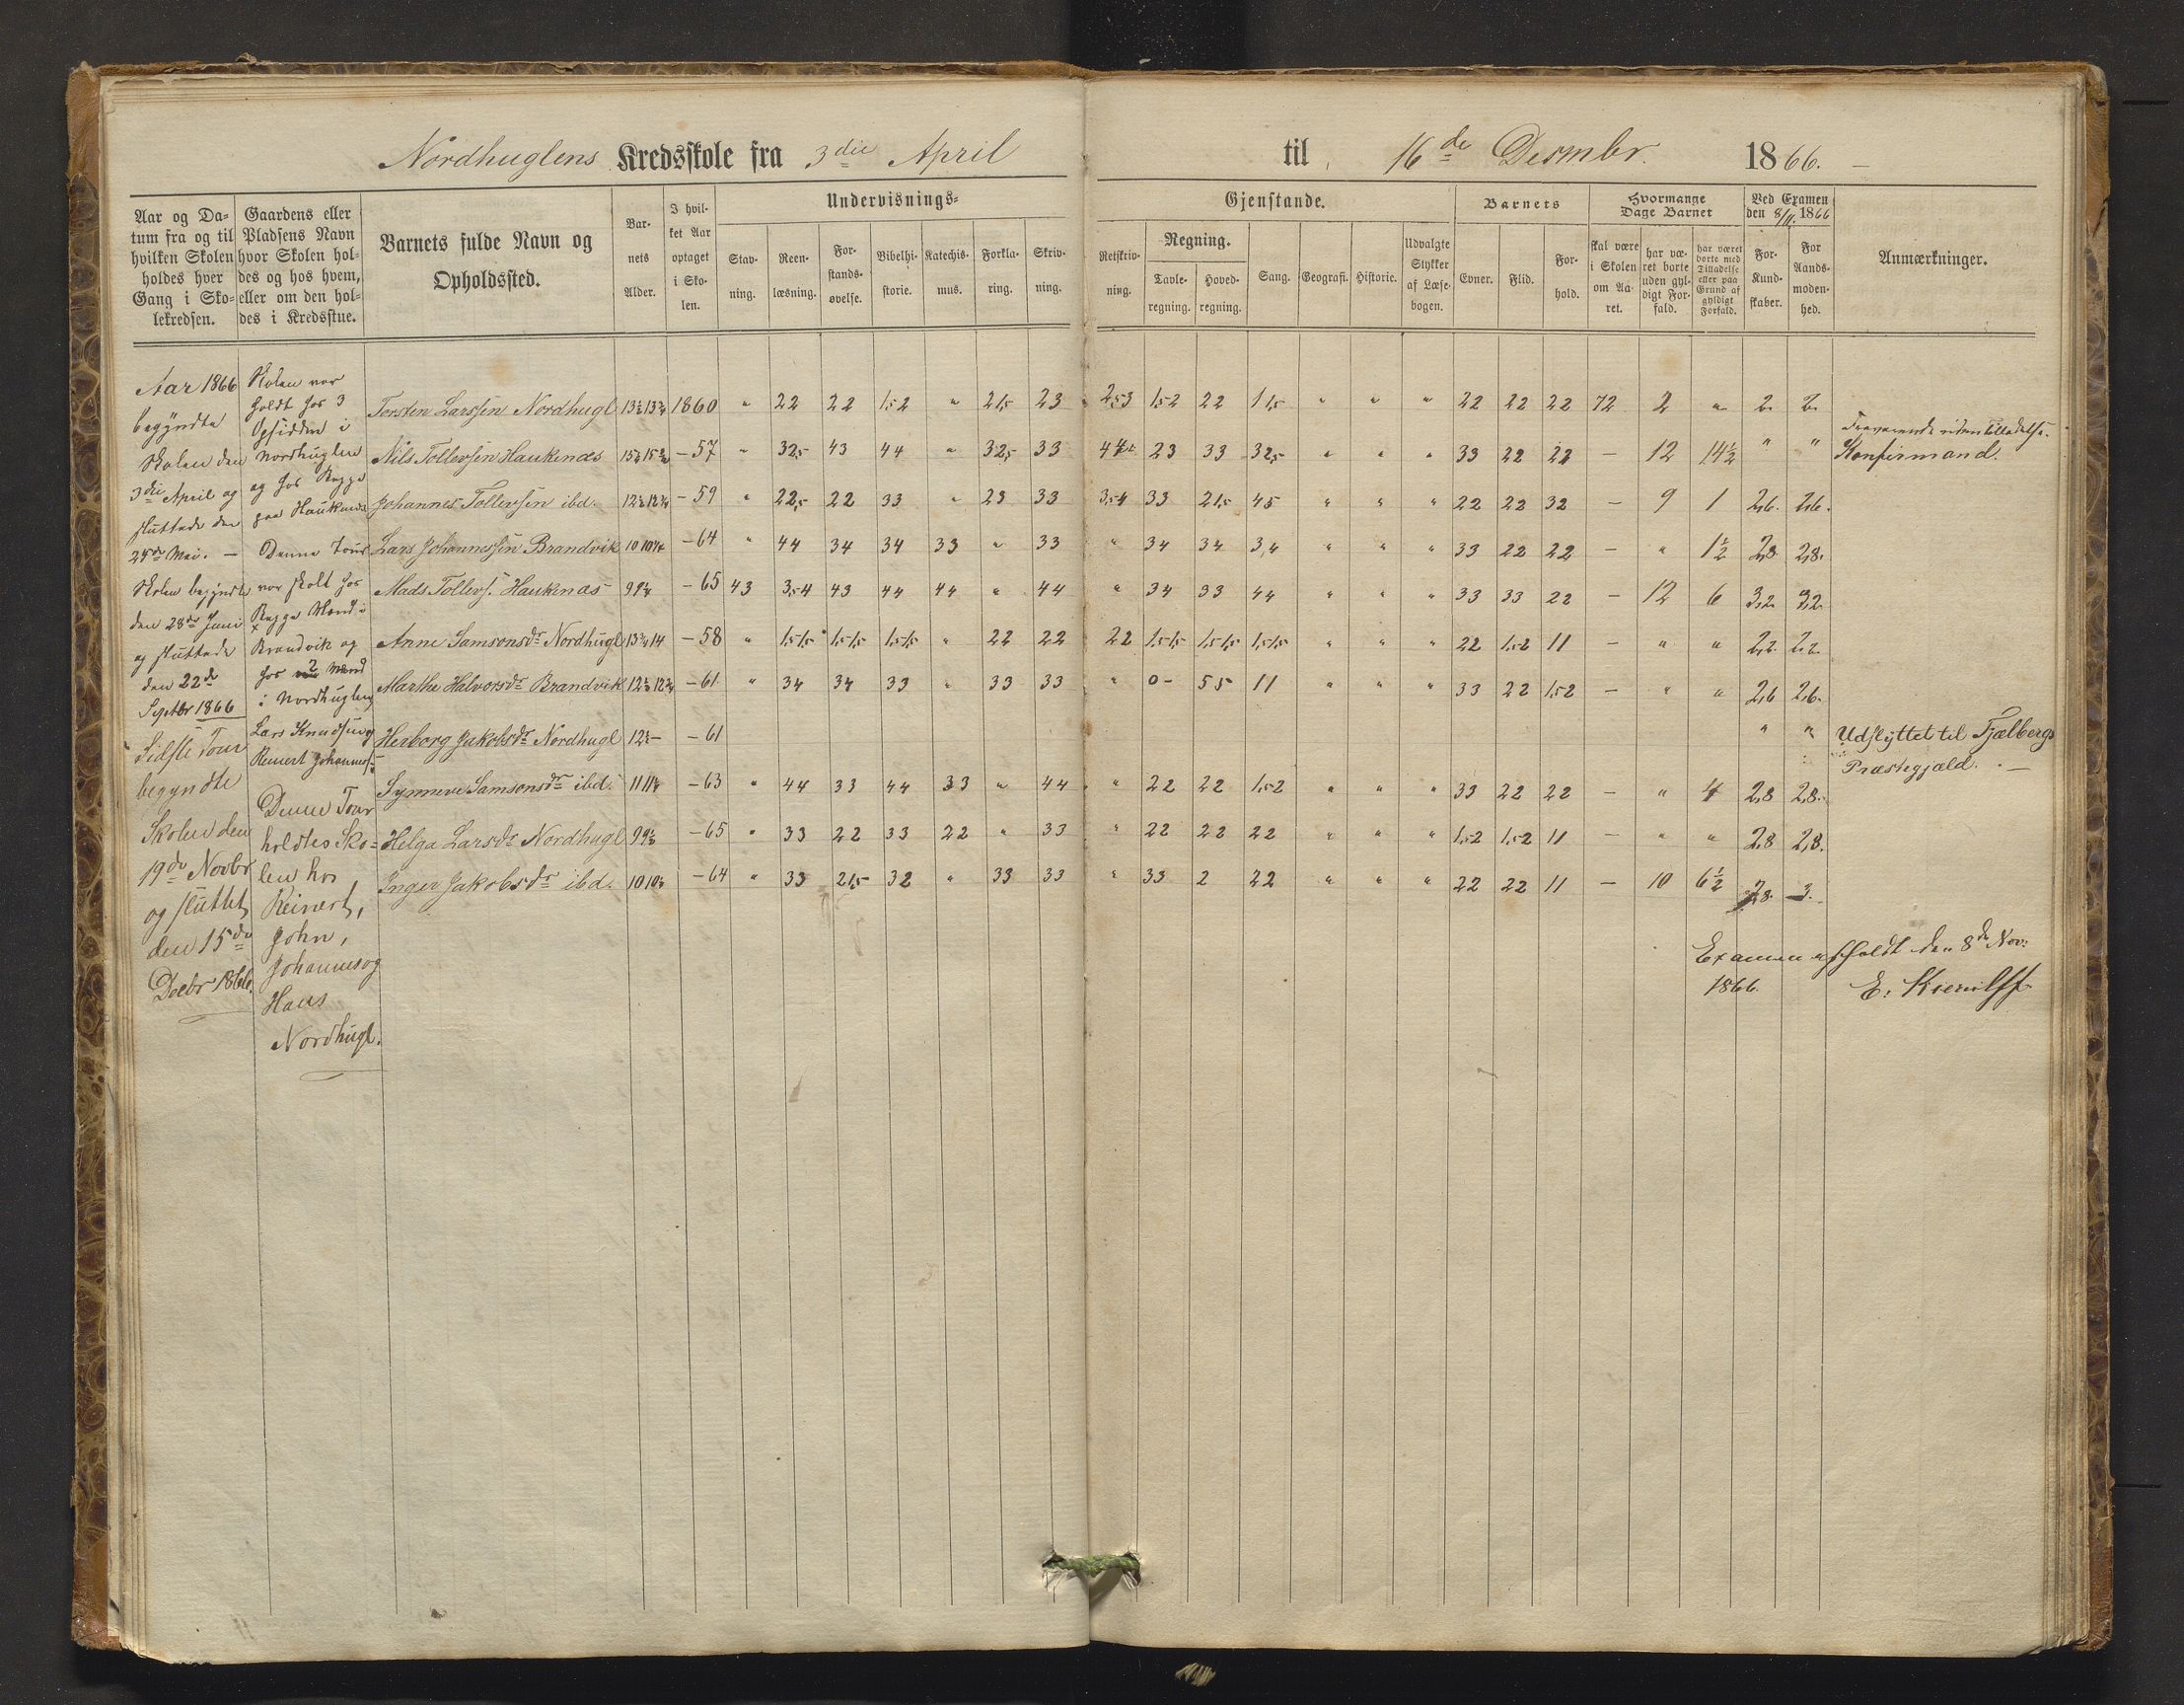 Nordhuglens Kredsskole fra 3die April til 16de Desmbr. 1866. —
Aar og Datum fra og til hvilken Skolen holdes hver Gang i Skolekredsen.
Gaardens eller Pladsens Navn hvor Skolen holdes og hos hvem, eller om den holdes i Kredsstue.
Barnets fulde Navn og Opholdssted.
Barnets Alder.
I hvilket Aar optaget i Skolen.
Undervisnings-
Stavning. Reenlæsning. Forstandsøvelse. Bibelhistorie. Katechismus. Forklaring. Skrivning.
Gjenstande.
Retskrivning. Regning. Tavleregning. Hovedregning. Sang. Geografi. Historie. Udvalgte Stykker af Læsebogen.
Barnets
Evner. Flid. Forhold.
Hvormange Dage Barnet
skal være i Skolen om Aaret. har været borte uden gyldigt Forfald. har været borte med Tilladelse eller paa Grund af gyldigt Forfald.
Ved Examen den 8/11 1866
For Kundskaber. For Aandsmodenhed.
Anmærkninger.
Aar 1866
begyndte
Skolen den
3die April og
sluttede den
24de Mai. —
Skolen begyndte
den 28de Juni
og sluttede
den 22de
Septbr 1866
Sidste Tour
begyndte
Skolen den
19de Novbr
og sluttet
den 15de
Decbr 1866.
Skolen var
holdt hos 3
Opsiddere i
Nordhuglen
og hos Begge
paa Haukenæs
Denne Tour
var skolt hos
Begge Mænd i
Brandvik og
hos 2 Mænd
i Nordhuglen
Lars Knudsen og
Reinert Johannes:
Denne Tour
holdtes Sko=
len hos
Reinert,
John,
Johannes og
Hans
Nordhugl.
Torsten Larssen Nordhugl 13½ 13¾ 1860 " 22 22 1,52 " 21,5 23 2,53 1,52 22 11,5 " " " 22 22 22 72 2 " 2. 2.
Fraværende uden tilladelse.
Nils Tollevsen Haukenæs 15½ 15¾ –57 " 32,5 43 44 " 32,5 33 44 23 33 32,5 " " " 33 22 22 – 12 14½ " " Konfirmand.
Johannes Tollevsen ibd. 12½ 12¾ –59 " 22,5 22 33 " 23 33 3,54 33 21,5 45 " " " 22 22 32 – 9 1 2,6. 2,6.
Lars Johannessen Brandvik 10 10¼ –64 " 44 34 34 33 " 33 " 34 34 3,4 " " " 33 22 22 – " 1½ 2,8 2,8.
Mads Tollevs. Haukenæs 9 9¼ –65 43 3,54 43 44 44 " 44 " 34 33 44 " " " 33 33 22 – 12 6 3,2 3,2
Anne Samsonsdr Nordhugl 13¾ 14 –58 " 1,51,5 1,51,5 1,51,5 " 22 22 22 1,51,5 1,51,5 1,51,5 " " " 22 1,52 11 – " " 2,2 2,2.
Marthe Halvorsdr Brandvik 12½ 12¾ –61 " 34 34 33 " 33 33 " 0– 55 11 " " " 33 22 1,52 – " " 2,6 2,6.
Herborg Jakobsdr Nordhugl 12½ – –61 " " Udflyttet til Fjælbergs
Præstegjæld. —
Synneve Samsonsdr ibd. 11 11¼ –63 " 44 33 44 33 " 44 " 22 22 1,52 " " " 33 22 22 – " 4 2,8 2,8.
Helga Larsdr Nordhugl 9 9½ –65 " 33 22 33 22 " 33 " 22 22 22 " " " 1,52 1,52 11 – " " 2,8 2,8.
Inger Jakobsdr ibd. 10 10½ –64 " 33 21,5 32 " 33 33 " 33 2 22 " " " 22 22 11 – 10 6½ 2,8. 3.
Examen afholdt den 8de Nov:
1866.